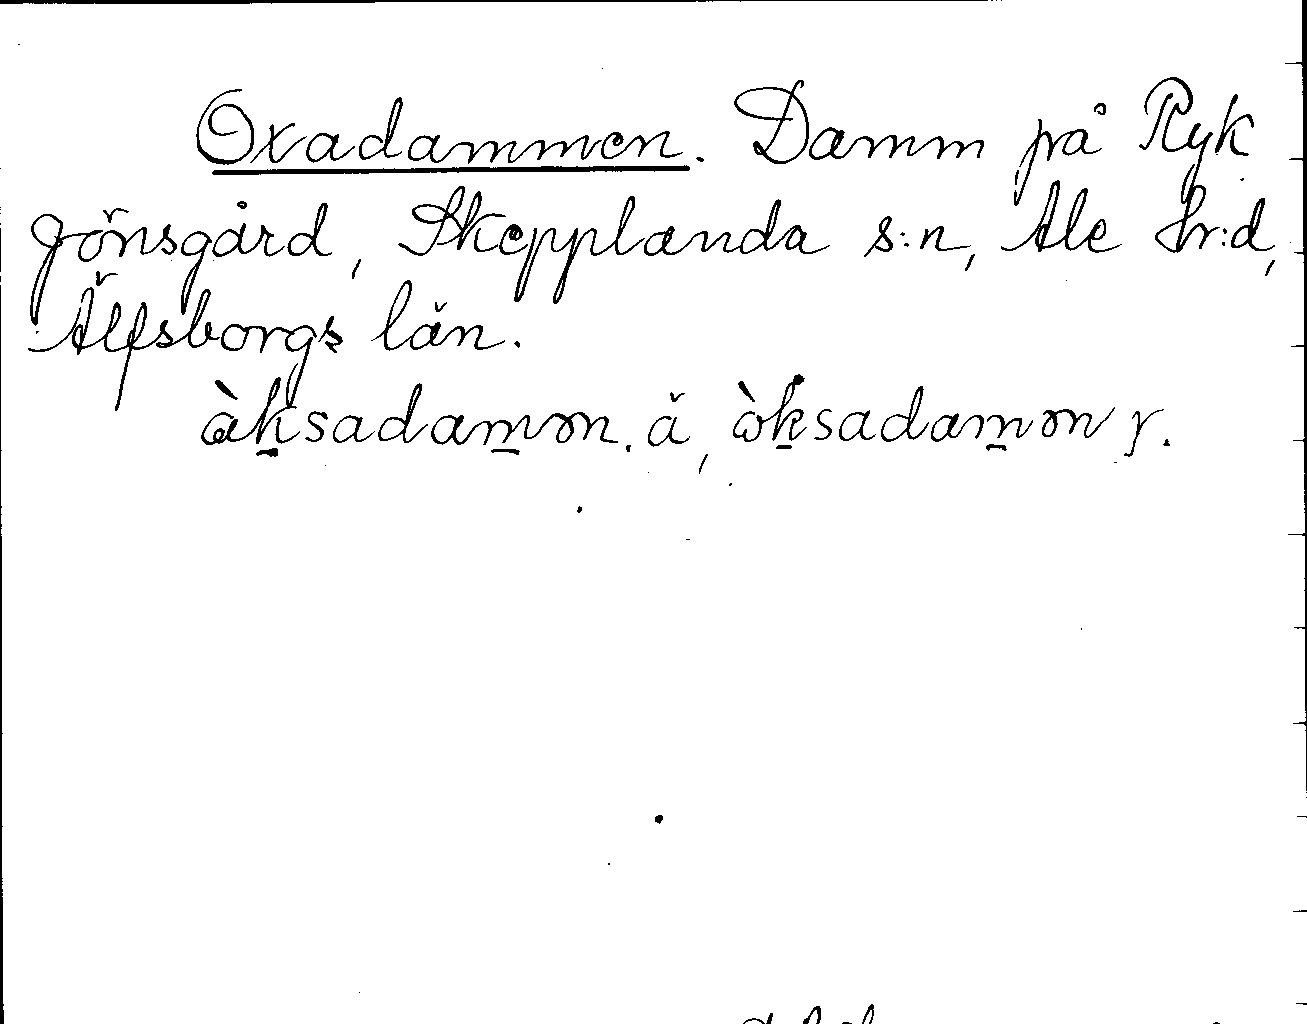 Oxadammen. Damm på Ryk
jönsgård, Skepplanda s:n, Ale hr:d,
Älfsborgs län.
àksadamm. ä, òksadamm y.